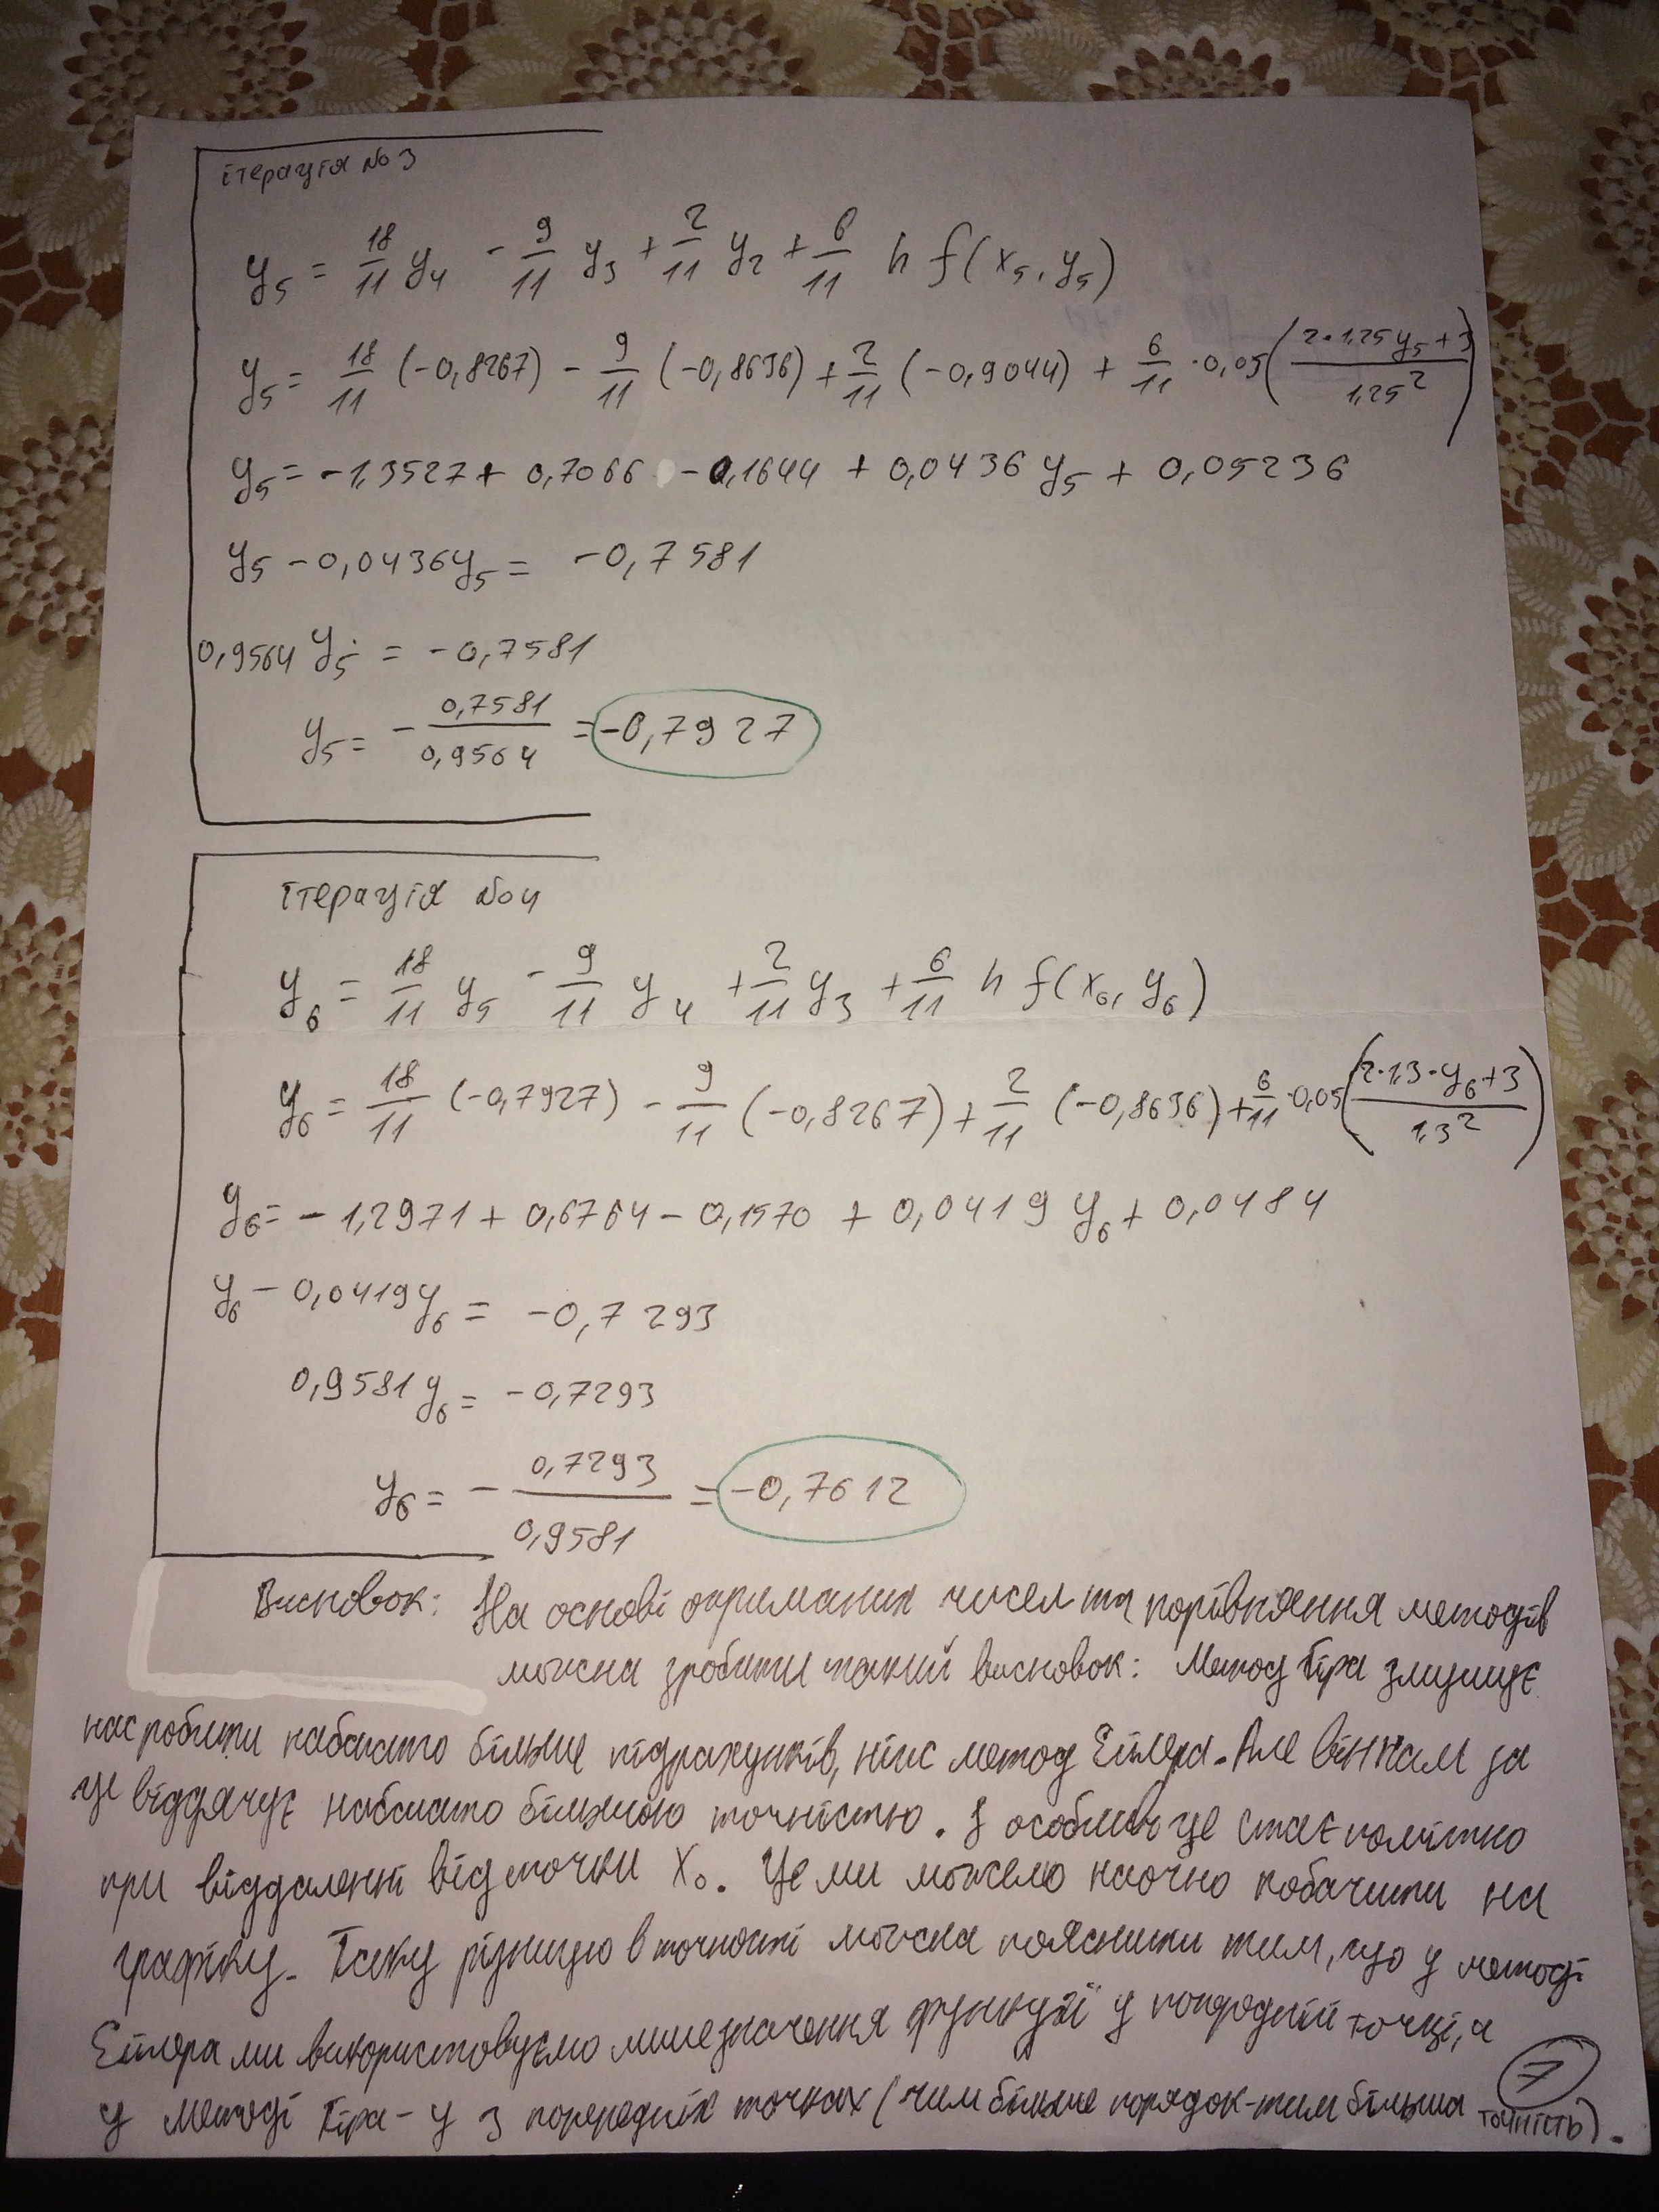 ітерація №3
y₅ = 18/11 y₄ - 9/11 y₃ + 2/11 y₂ + 6/11 h f(x₅, y₅)
y₅ = 18/11 (-0,8267) - 9/11 (-0,8636) + 2/11 (-0,9044) + 6/11 · 0,05 ((2·1,25y₅+3)/1,25²)
y₅ = -1,3527 + 0,7066 - 0,1644 + 0,0436 y₅ + 0,05236
y₅ - 0,0436y₅ = -0,7581
0,9564 y₅ = -0,7581
y₅ = - 0,7581/0,9564 = -0,7927
ітерація №4
y₆ = 18/11 y₅ - 9/11 y₄ + 2/11 y₃ + 6/11 h f(x₆, y₆)
y₆ = 18/11 (-0,7927) - 9/11 (-0,8267) + 2/11 (-0,8636) + 6/11 · 0,05 ((2·1,3·y₆+3)/1,3²)
y₆ = -1,2971 + 0,6764 - 0,1570 + 0,0419 y₆ + 0,0484
y₆ - 0,0419y₆ = -0,7293
0,9581 y₆ = -0,7293
y₆ = - 0,7293/0,9581 = -0,7612
Висновок: На основі отриманих чисел та порівняння методів
можна зробити такий висновок: Метод Гіра змушує
нас робити набагато більше підрахунків, ніж метод Ейлера. Але він нам за
це віддячує набагато більшою точністю. І особливо це стає помітно
при віддалені від точки X₀. Це ми можемо наочно побачити на
графіку. Таку різницю в точності можна пояснити тим, що у методі
Ейлера ми використовуємо лише значення функції у попередній точці, а
у методі Гіра - у 3 попередніх точках (чим більше порядок - тим більша точність).
7